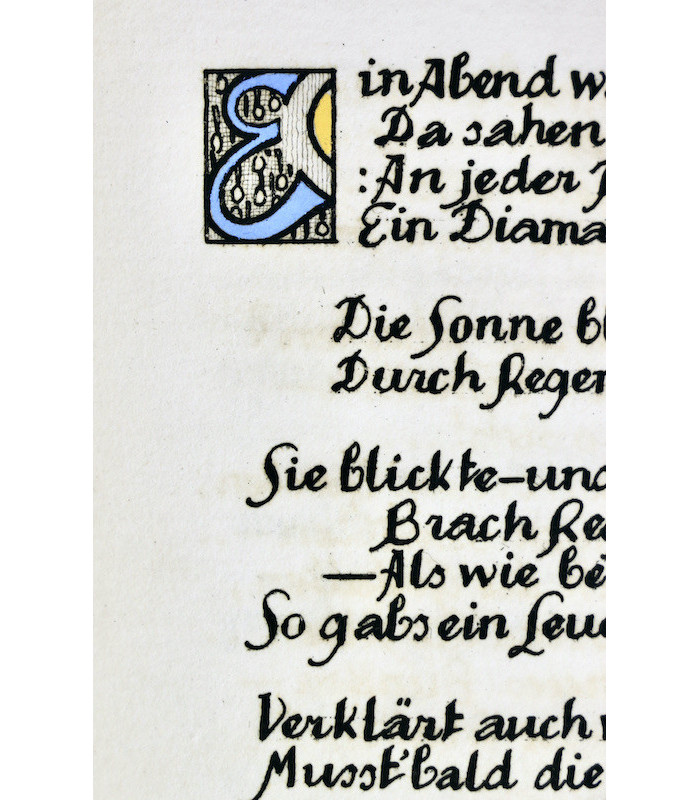 Ein Abend w
Da sahen
:An jeder
Ein Diama
Die Sonne bl
Durch Regen
Sie blickte-und
Brach Re
—Als wie be
So gabs ein Leuc
Verklärt auch
Musst' bald die